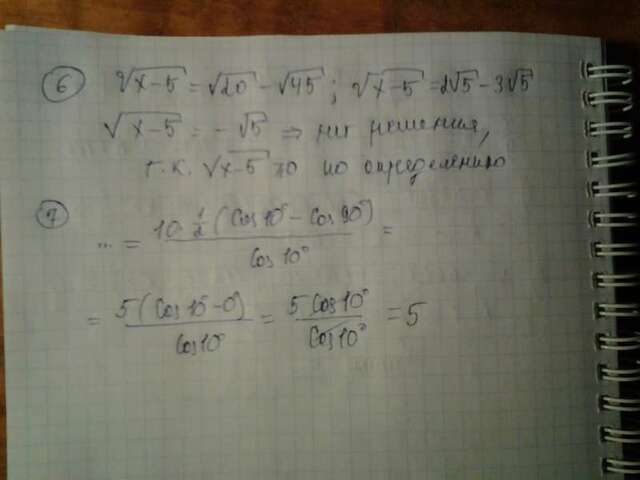 6 √x-5 = √20 - √45 ; √x-5 = 2√5 - 3√5
√x-5 = - √5 ⇒ нет решения,
т.к. √x-5 ≥0 по определению
7 ... = 10·½ (Cos10° - Cos 90°) / Cos10° =
= 5 (Cos10° - 0) / Cos10° = 5 Cos10° / Cos10° = 5